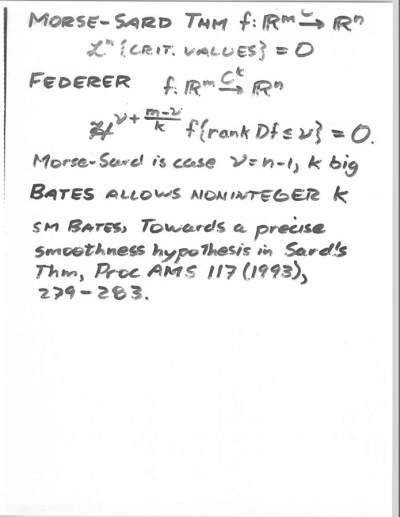 MORSE-SARD THM f: ℝᵐ → ℝⁿ
ℒⁿ {CRIT. VALUES} = 0
FEDERER f: ℝᵐ →^{Cᵏ} ℝⁿ
ℋ^{ν + (m-ν)/k} f{rank Df ≤ ν} = 0.
Morse-Sard is case ν=n-1, k big
BATES ALLOWS NONINTEGER K
SM BATES, Towards a precise
smoothness hypothesis in Sard's
Thm, Proc AMS 117 (1993),
279-283.